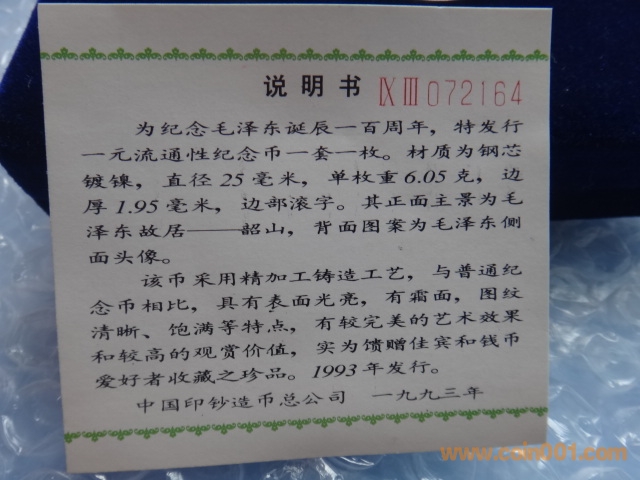 说明书 ⅨⅢ072164
为纪念毛泽东诞辰一百周年，特发行
一元流通性纪念币一套一枚。材质为钢芯
镀镍，直径25毫米，单枚重6.05克，边
厚1.95毫米，边部滚字。其正面主景为毛
泽东故居——韶山，背面图案为毛泽东侧
面头像。
该币采用精加工铸造工艺，与普通纪
念币相比，具有表面光亮，有霜面，图纹
清晰、饱满等特点，有较完美的艺术效果
和较高的观赏价值，实为馈赠佳宾和钱币
爱好者收藏之珍品。1993年发行。
中国印钞造币总公司 一九九三年
www.coin001.com